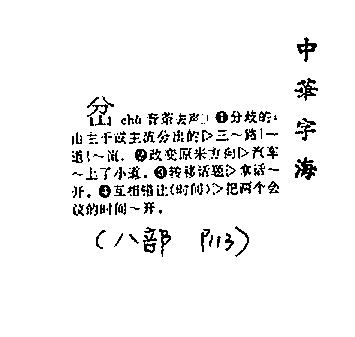 中華字海
岔 chà 音茶去声 ❶分歧的，
由主干或主流分出的▷三～路|～
道|～流。❷改变原来方向▷汽车
～上了小道。❸转移话题▷拿话～
开。❹互相错让(时间)▷把两个会
议的时间～开。
(八部 P113)